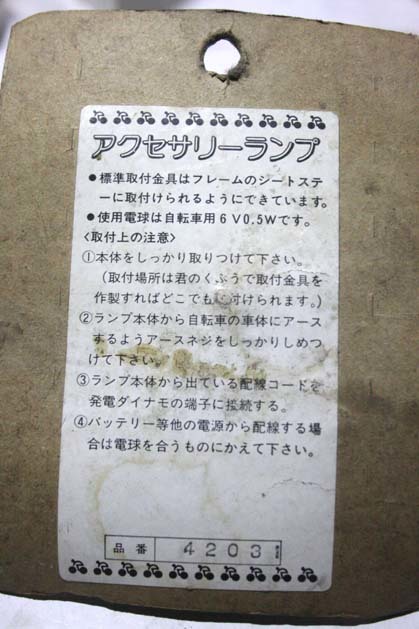 アクセサリーランプ
●標準取付金具はフレームのシートステ
ーに取付けられるようにできています。
●使用電球は自転車用6V0.5Wです。
〈取付上の注意〉
①本体をしっかり取りつけて下さい。
(取付場所は君のくふうで取付金具を
作製すればどこでも付けられます。)
②ランプ本体から自転車の車体にアース
するようアースネジをしっかりしめつ
けて下さい。
③ランプ本体から出ている配線コードを
発電ダイナモの端子に接続する。
④バッテリー等他の電源から配線する場
合は電球を合うものにかえて下さい。
品番 4203